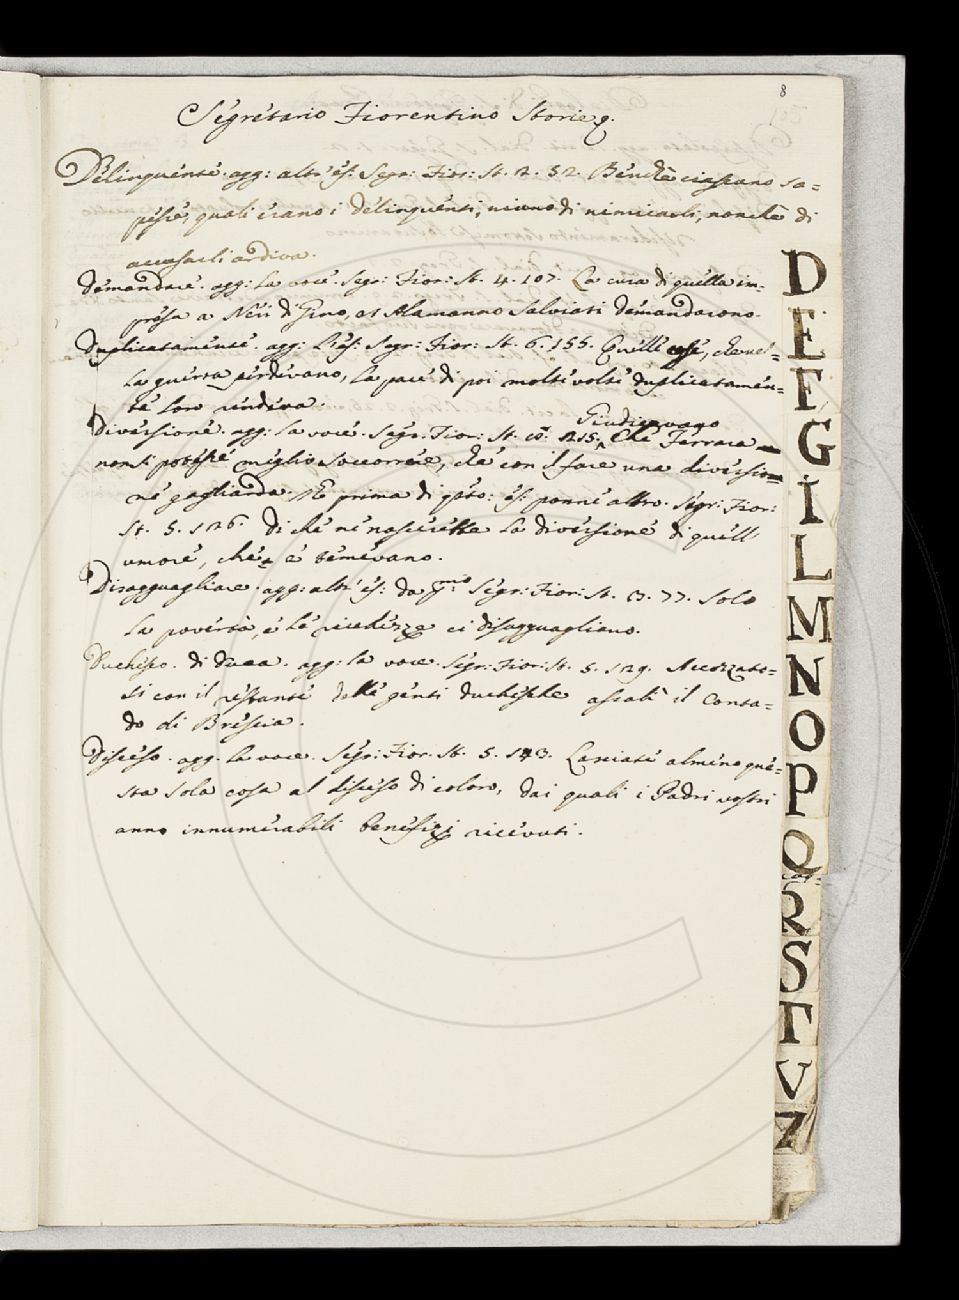 8
Segretario Fiorentino Storie g.
Delinquente. agg: altr'es: Segr: Fior: St. 2. 52. Benchè ciascano sa=
pesse, quali erano i delinquenti, niuno di nimicarli, nonchè di
accusarli ardiva.
Demandare. agg: la voce. Segr: Fior: St. 4. 107. La cura di quella im-
presa a Neri di Gino, et Alamanno Salviati demandarono.
Duplicatamente. agg: l'es: Segr: Fior: St. 6. 155. Quelle cose, che nel=
la guerra perdevano, la pace di poi molte volte duplicatamen=
te loro rendeva.
Giudicavano
Diversione. agg: la voce. Segr: Fior: St. 215. Che Ferrara
non si potesse meglio soccorrere, che con il fare una diversio=
ne gagliarda. Ma prima di qsto: es: ponne altro. Segr: Fior:
St. 5. 126. Di che ne nascerebbe la diversione di quell'
umore, che e' temevano.
Disagguagliare. agg: altr' es: da pmo Segr: Fior: St. 3. 77. Solo
la povertà, e le ricchezze ci disagguagliano.
Duchesco. di duca. agg: la voce. Segr: Fior: St. 5. 129. Accozzato=
si con il restante delle genti duchesche assalì il Conta=
do di Brescia.
Disceso. agg. la voce. Segr: Fior. St. 5. 143. Lasciate almeno que=
sta sola cosa al disceso di coloro, dai quali i Padri vostri
anno innumerabili benefizj ricevuti.
D
E
F
G
I
L
M
N
O
P
Q
R
S
T
V
Z